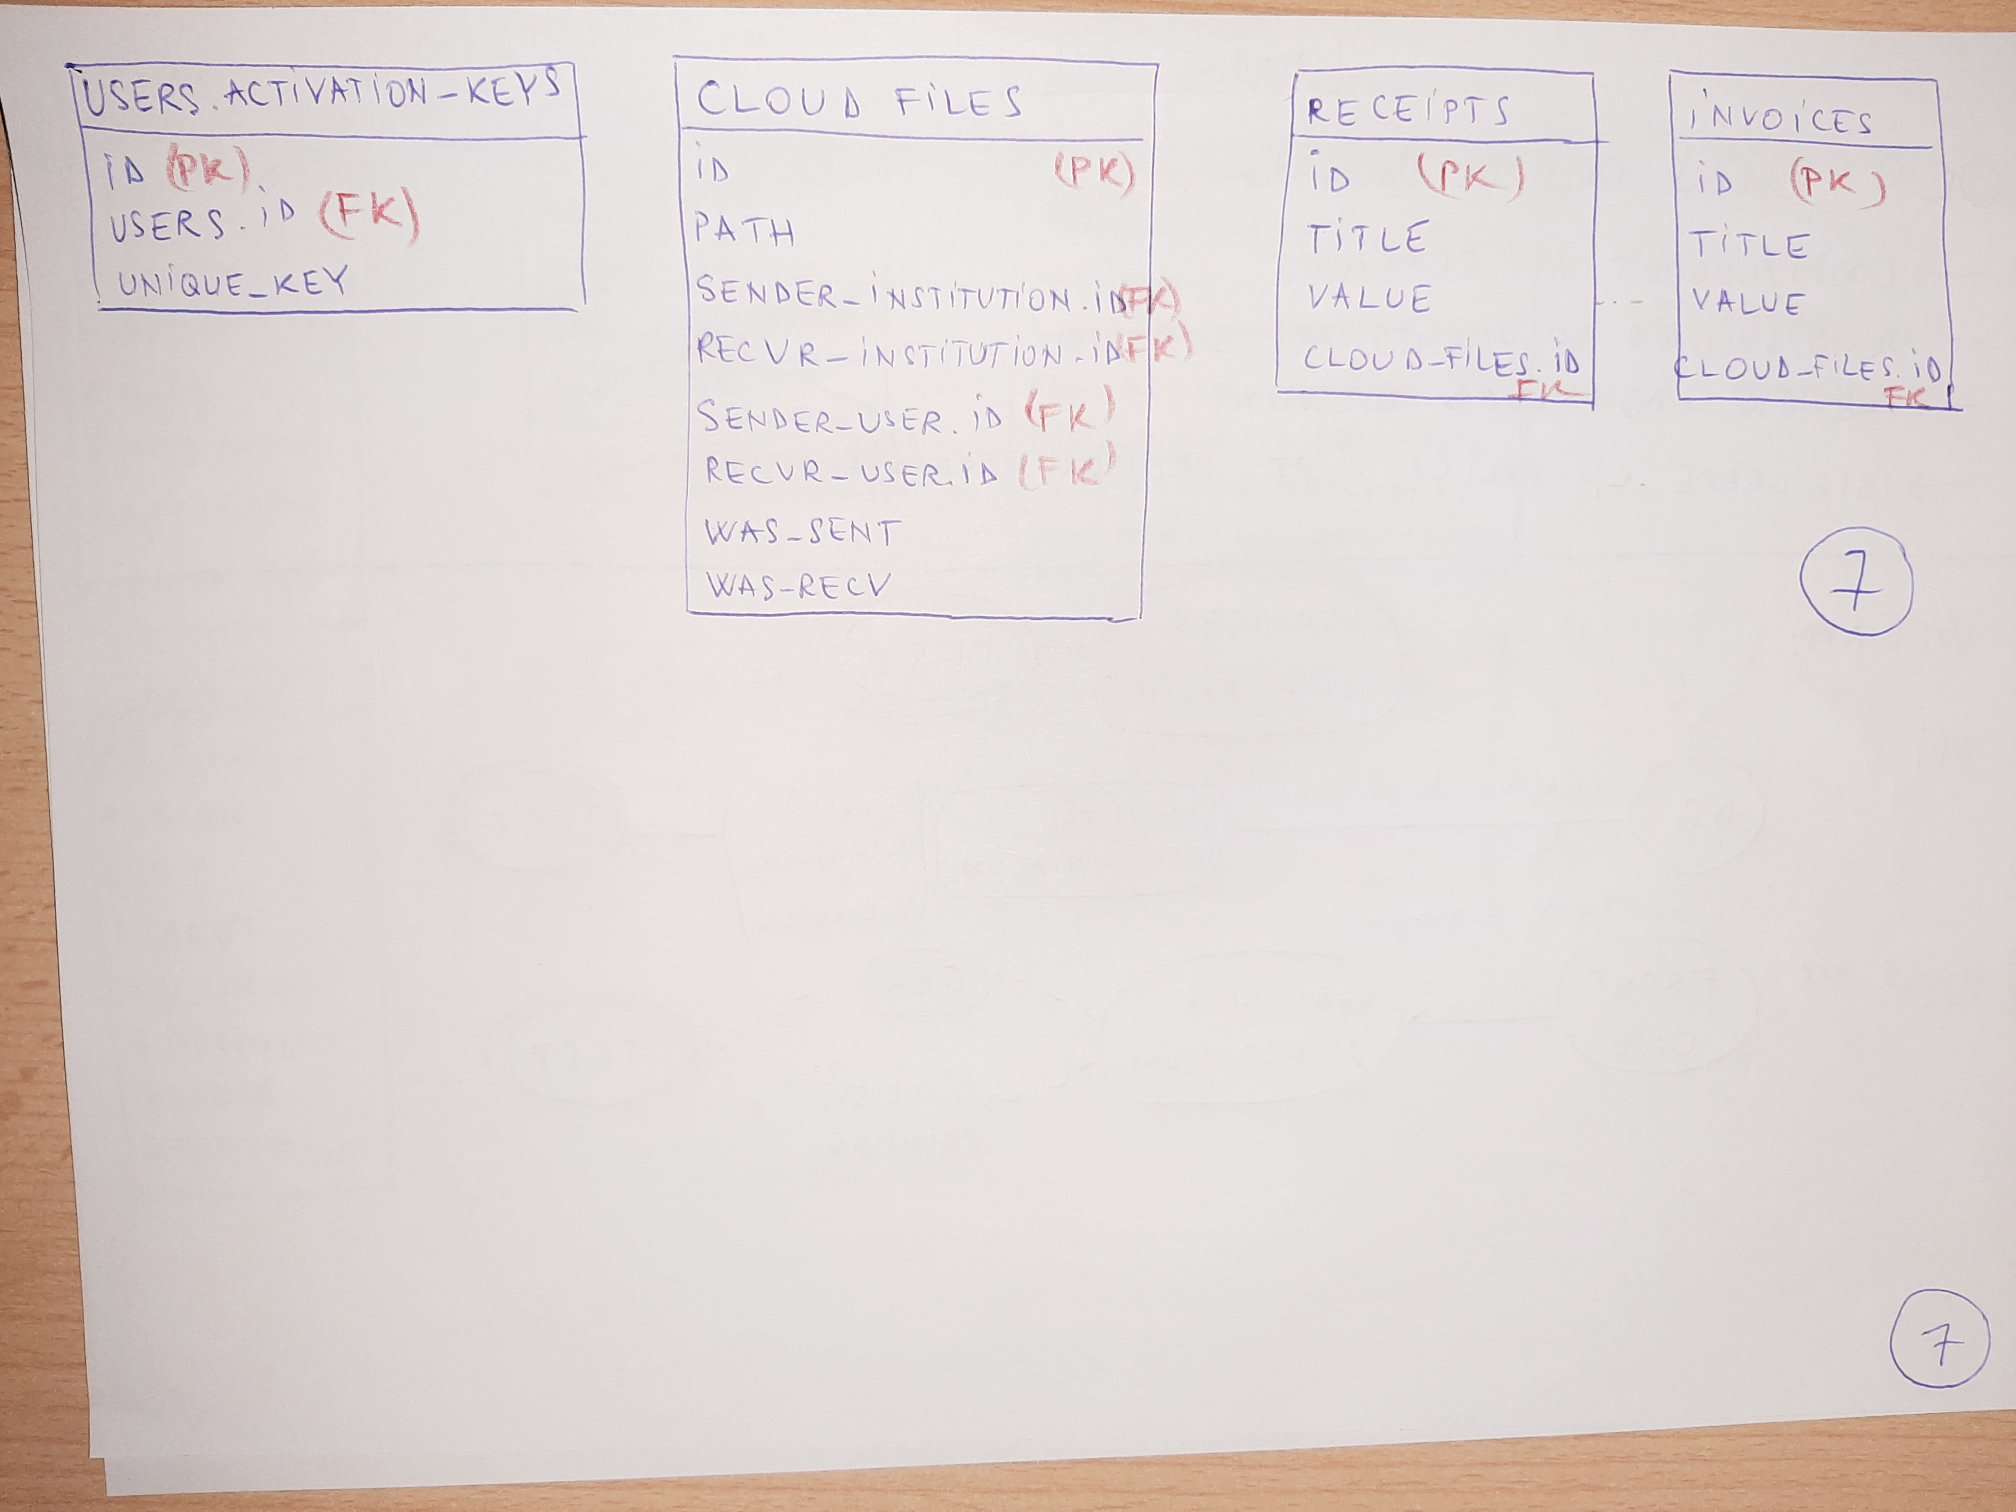 USERS.ACTIVATION_KEYS
ID (PK)
USERS.ID (FK)
UNIQUE_KEY
CLOUD FILES
ID (PK)
PATH
SENDER_INSTITUTION.ID (FK)
RECVR_INSTITUTION.ID (FK)
SENDER_USER.ID (FK)
RECVR_USER.ID (FK)
WAS_SENT
WAS_RECV
RECEIPTS
ID (PK)
TITLE
VALUE
CLOUD_FILES.ID
FK
...
INVOICES
ID (PK)
TITLE
VALUE
CLOUD_FILES.ID
FK
7
7